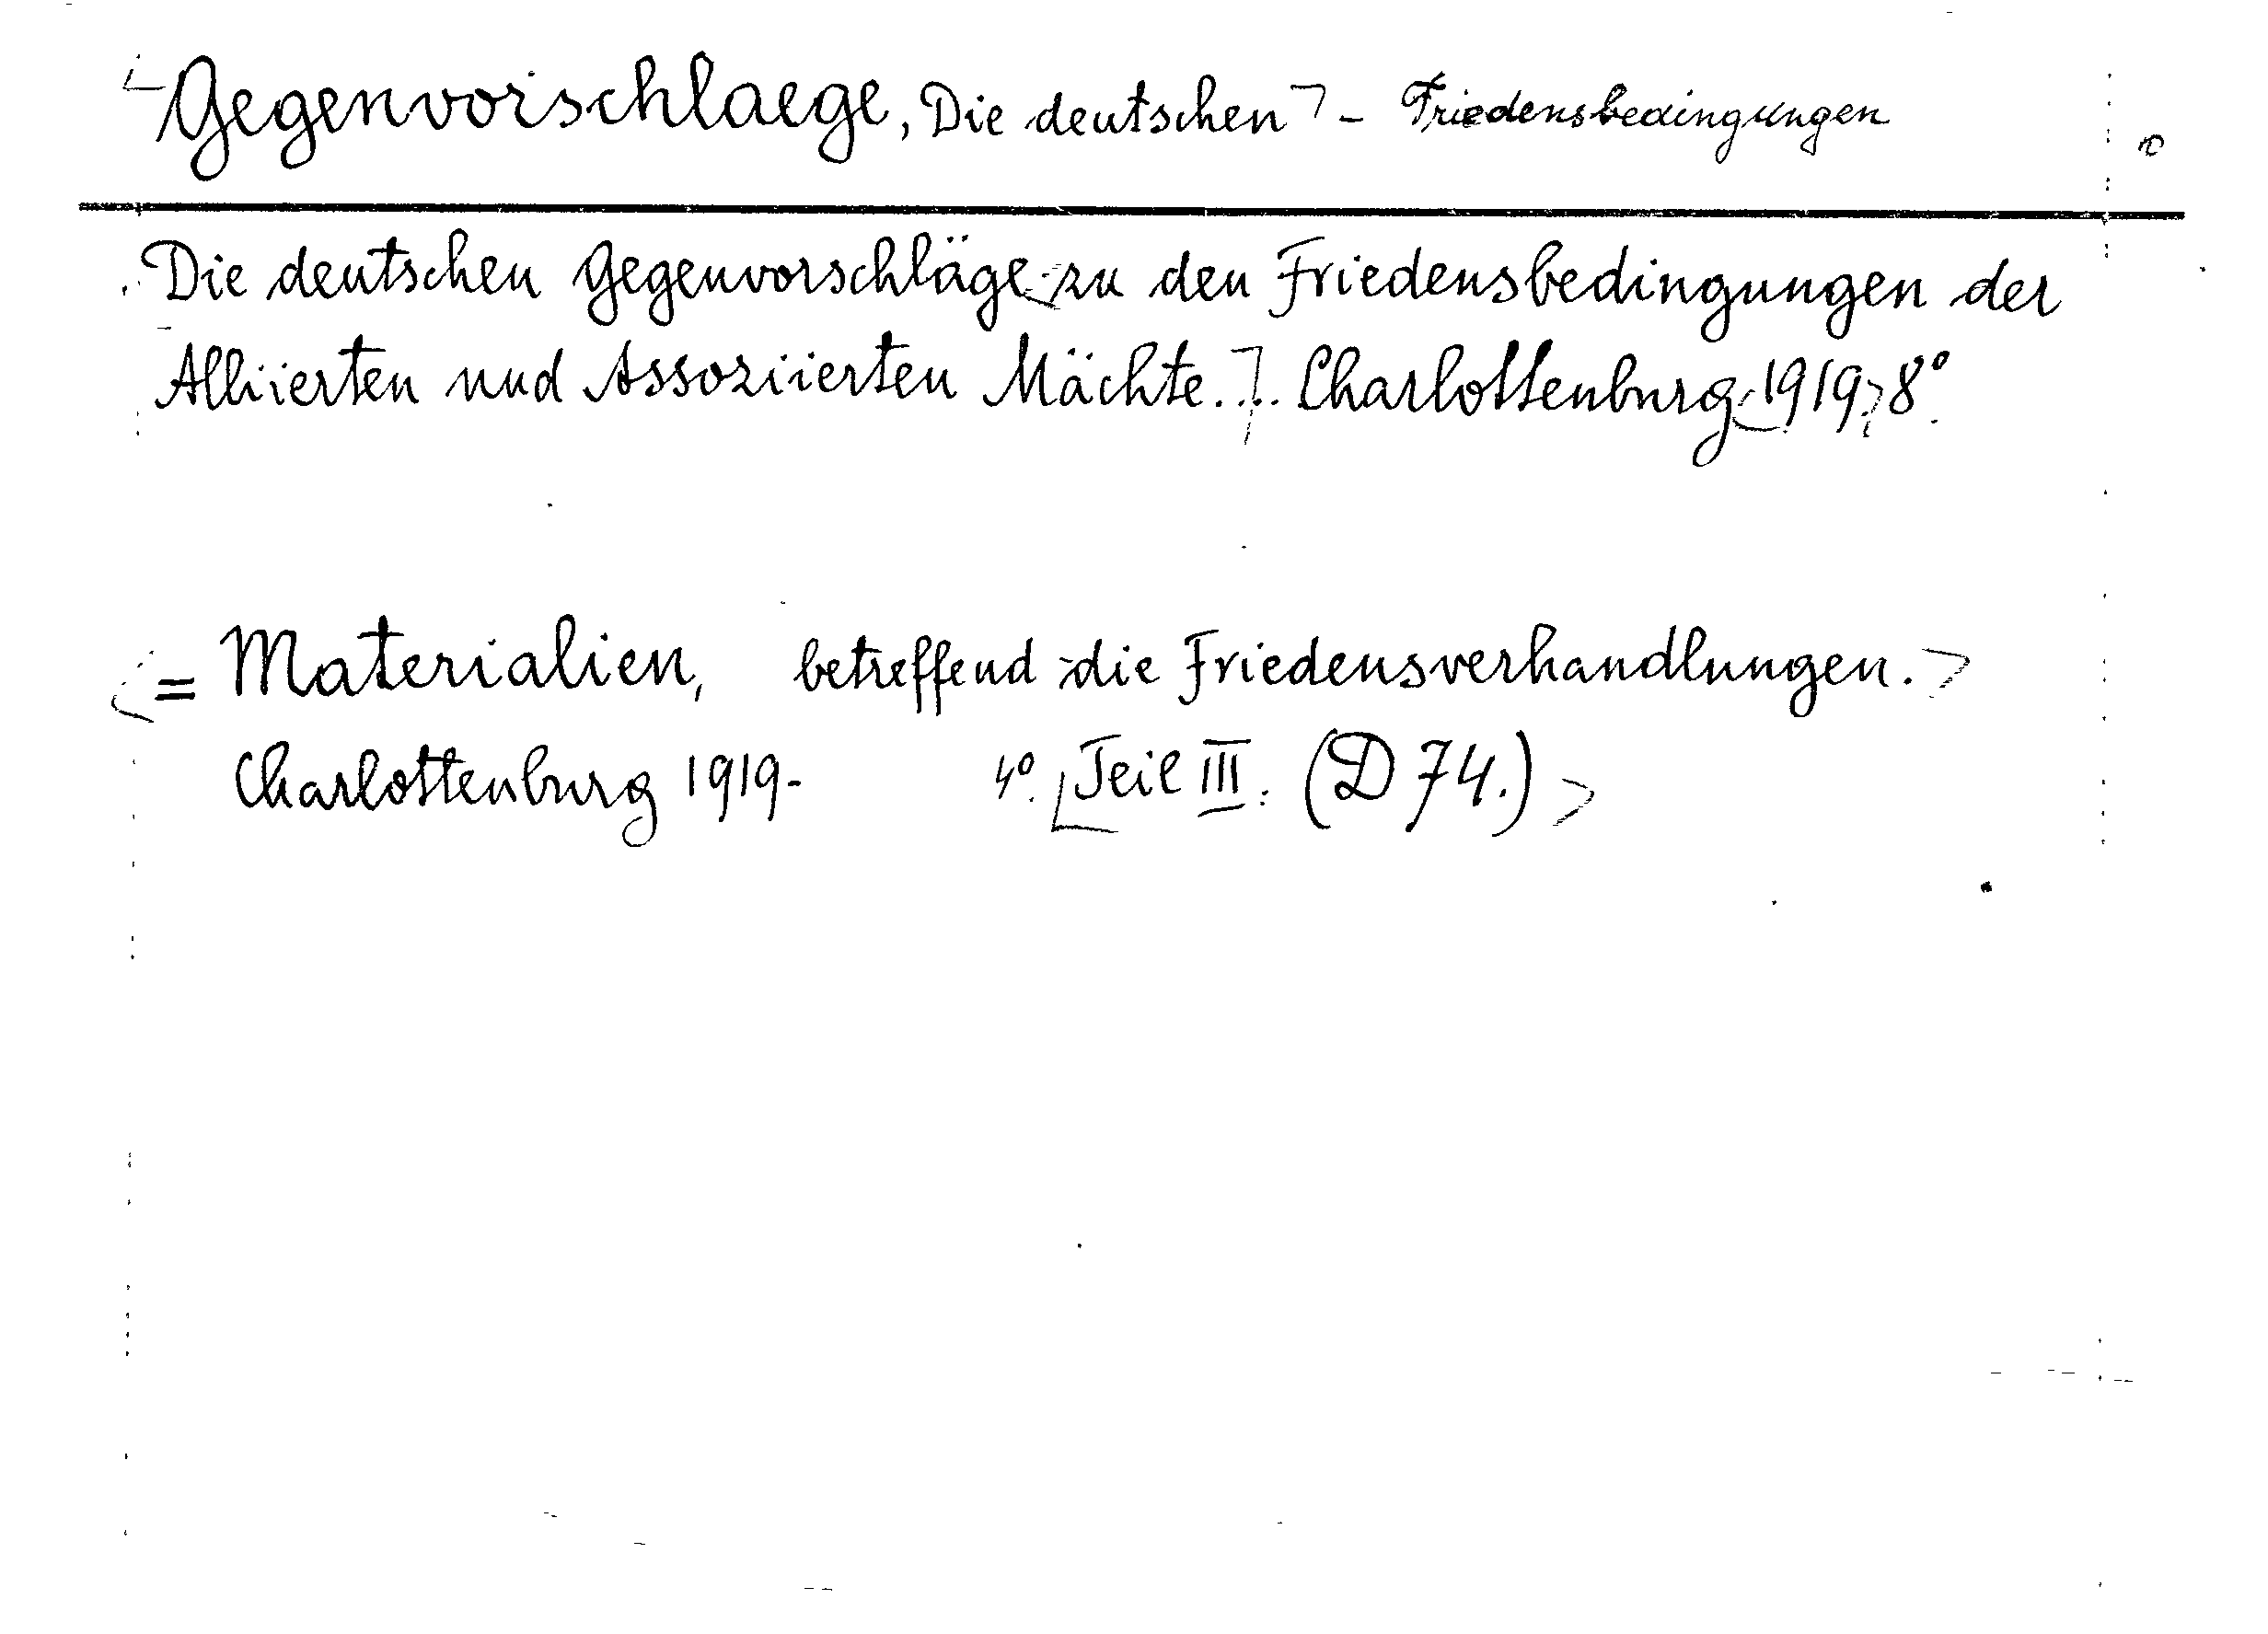 Gegenvorschlaege, Die deutschen - Friedensbedingungen
Die deutschen Gegenvorschläge zu den Friedensbedingungen der
Alliierten und Assoziierten Mächte... Charlottenburg 1919. 8°.
= Materialien, betreffend die Friedensverhandlungen.
Charlottenburg 1919- 4°. Teil III. (D 74.)